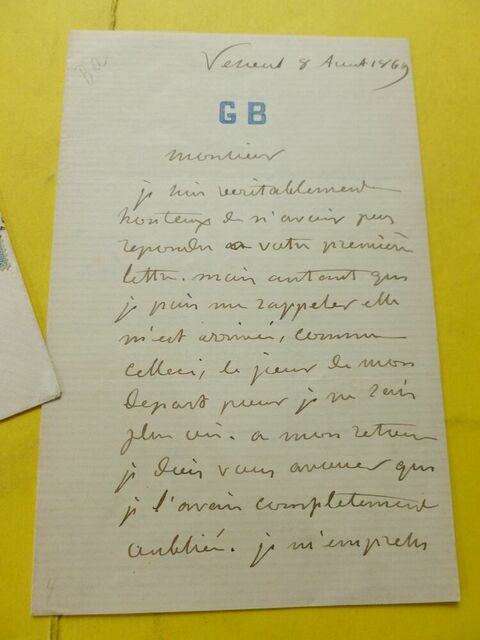 Ba
8 Aout 1869
GB
monsieur
je suis veritablement
honteux de n'avoir pas
repondu a votre première
lettre. mais autant que
je puis me rappeler elle
m'est arrivée, comme
celleci, le jour de mon
depart pour je ne sais
plus où. a mon retour
je dois vous avouer que
je l'avais completement
oubliée. je m'empresse